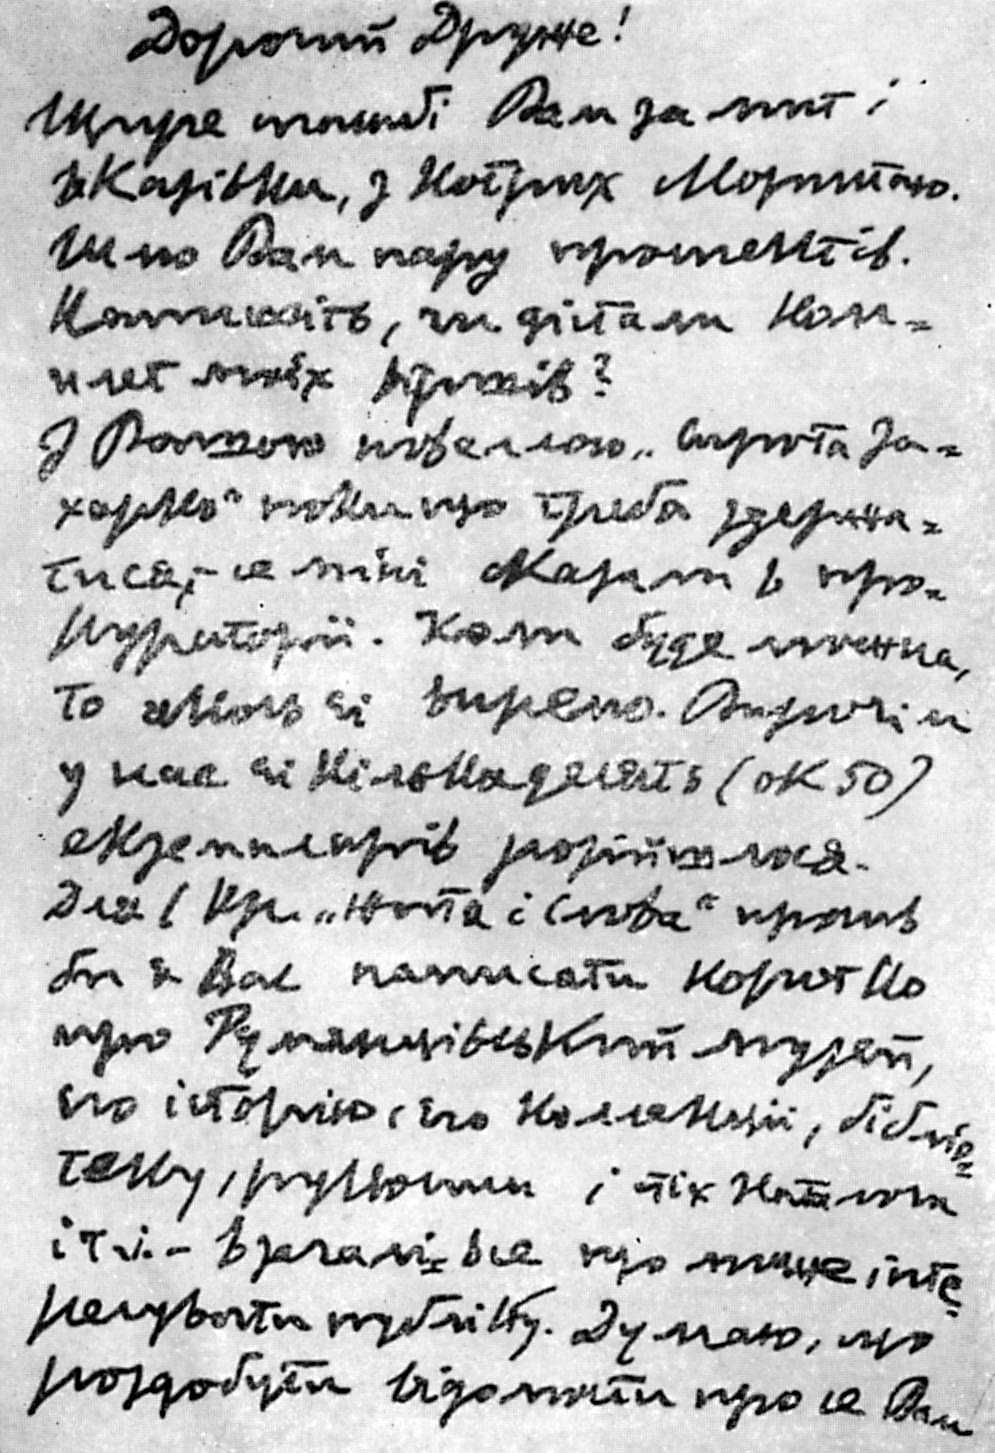 Дорогий Друже!
Щире спасибі Вам за лист і
вказівки, з котрих користаю.
Шлю Вам пару проспектів.
Напишіть, чи дістали ком-
плет моїх віршів?
З Вашою новеллою „Сирота За-
харко“ поки що треба здержа-
тися, - се мині казали в про-
кураторії. Коли буде можна,
то якось єї випремо. Впрочім
у нас єї кількадесять (ок 50)
екземплярів розійшлося.
Для Укр. „Життя і Слова“ просив
би я Вас написати коротко
про Румянцівський музей,
его історію, его колекції, бібліо-
теку, рукописи і їх каталоги
і т. і. - взагалі все що може інте-
ресувати публіку. Думаю, що
роздобути відомости про се Вам